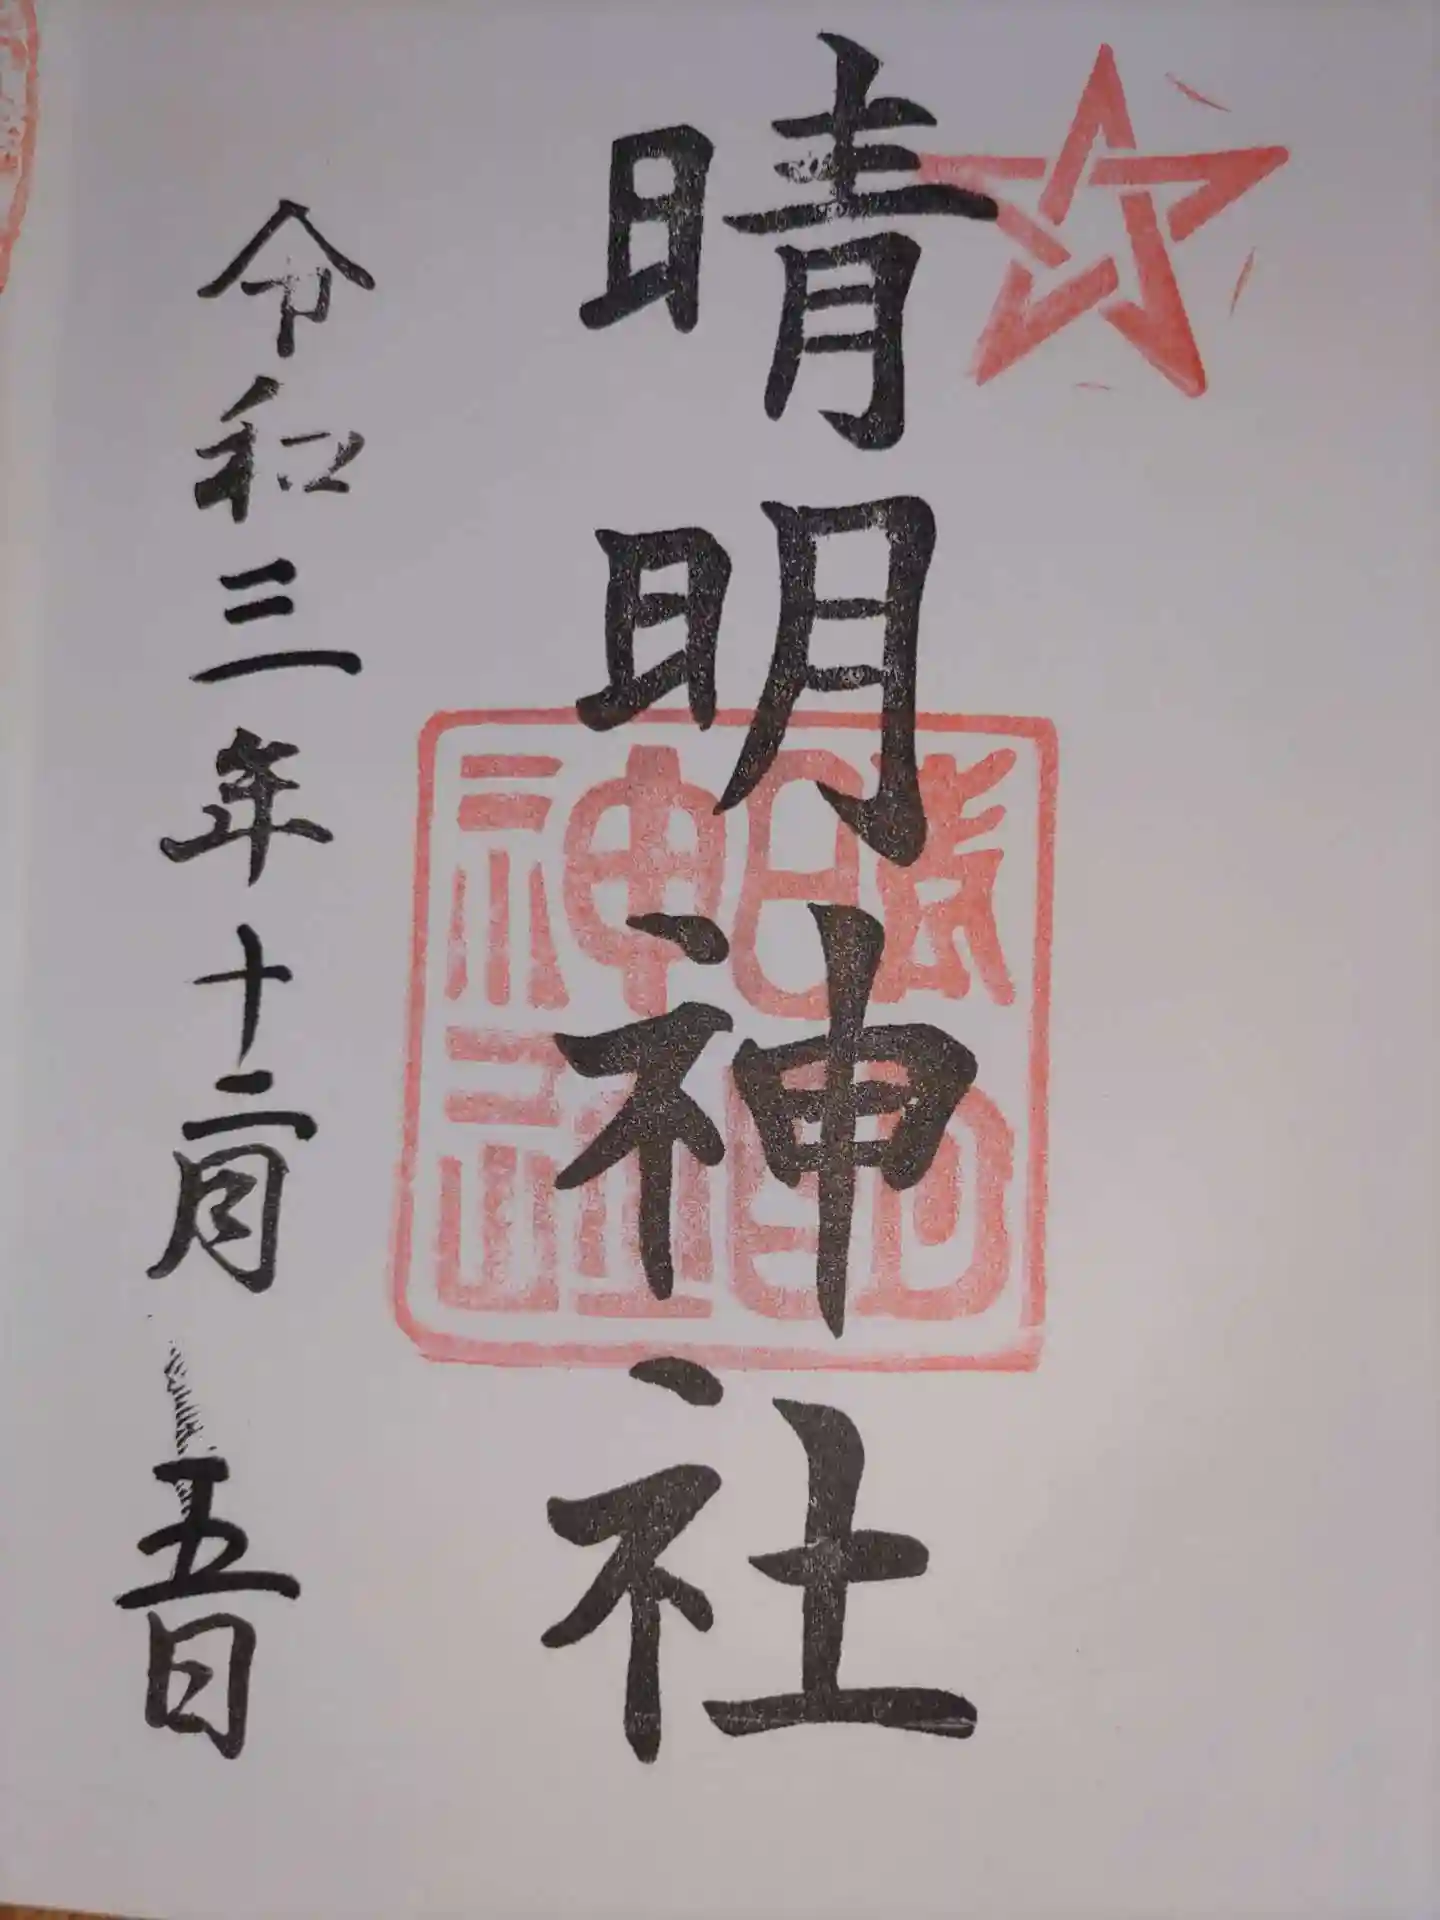 晴明神社
晴明
神社
令和三年十二月五日